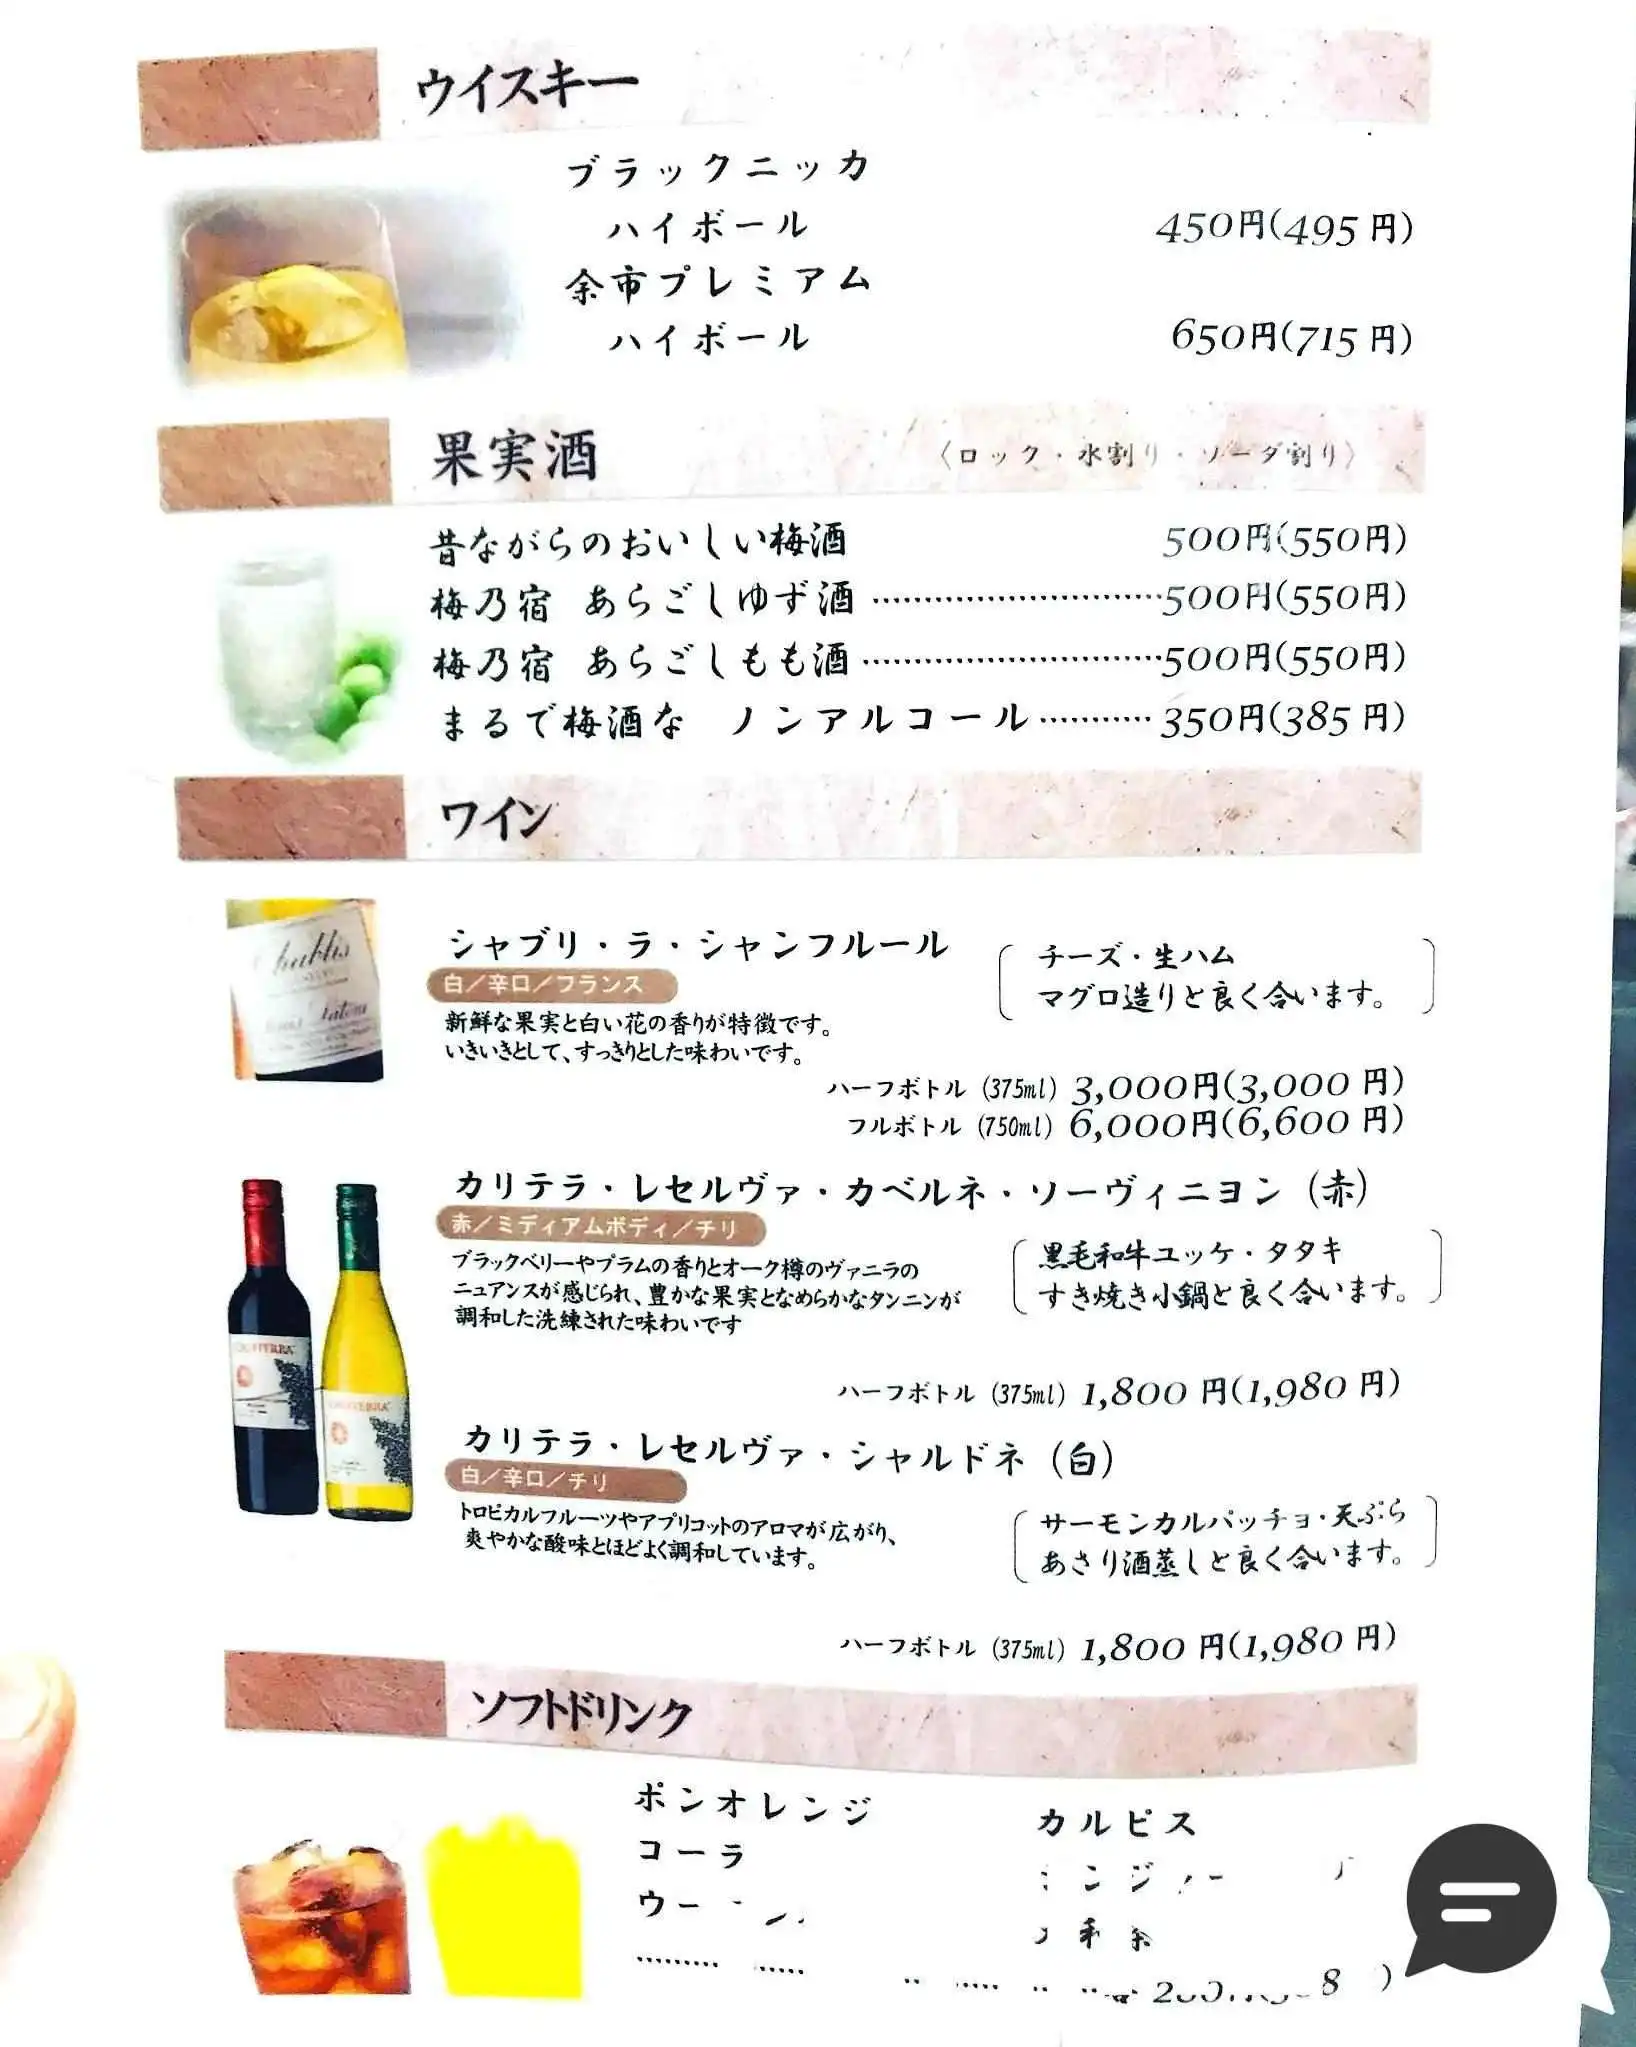 ウイスキー
ブラックニッカ
ハイボール 450円(495円)
余市プレミアム
ハイボール 650円(715円)
果実酒 〈ロック・水割り・ソーダ割り〉
昔ながらのおいしい梅酒 500円(550円)
梅乃宿 あらごしゆず酒 …………………………500円(550円)
梅乃宿 あらごしもも酒 …………………………500円(550円)
まるで梅酒な ノンアルコール…………350円(385円)
ワイン
Chablis
シャブリ・ラ・シャンフルール
白／辛口／フランス
新鮮な果実と白い花の香りが特徴です。
いきいきとして、すっきりとした味わいです。
チーズ・生ハム
マグロ造りと良く合います。
ハーフボトル (375ml) 3,000円(3,000円)
フルボトル (750ml) 6,000円(6,600円)
カリテラ・レセルヴァ・カベルネ・ソーヴィニヨン (赤)
赤／ミディアムボディ／チリ
ブラックベリーやプラムの香りとオーク樽のヴァニラの
ニュアンスが感じられ、豊かな果実となめらかなタンニンが
調和した洗練された味わいです
黒毛和牛ユッケ・タタキ
すき焼き小鍋と良く合います。
ハーフボトル (375ml) 1,800円(1,980円)
カリテラ・レセルヴァ・シャルドネ (白)
白／辛口／チリ
トロピカルフルーツやアプリコットのアロマが広がり、
爽やかな酸味とほどよく調和しています。
サーモンカルパッチョ・天ぷら
あさり酒蒸しと良く合います。
ハーフボトル (375ml) 1,800円(1,980円)
ソフトドリンク
ポンオレンジ
コーラ
カルピス